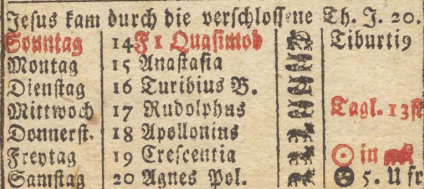 Jesus kam durch die verschlossene Th. J. 20.
Sonntag 14 F 1 Quasimod Tiburti9
Montag 15 Anastasia
Dienstag 16 Turibius B.
Mittwoch 17 Rudolphus Tagl. 13 st
Donnerst. 18 Apollonius
Freytag 19 Crescentia ☉ in
Samstag 20 Agnes Pol. 5. U fr